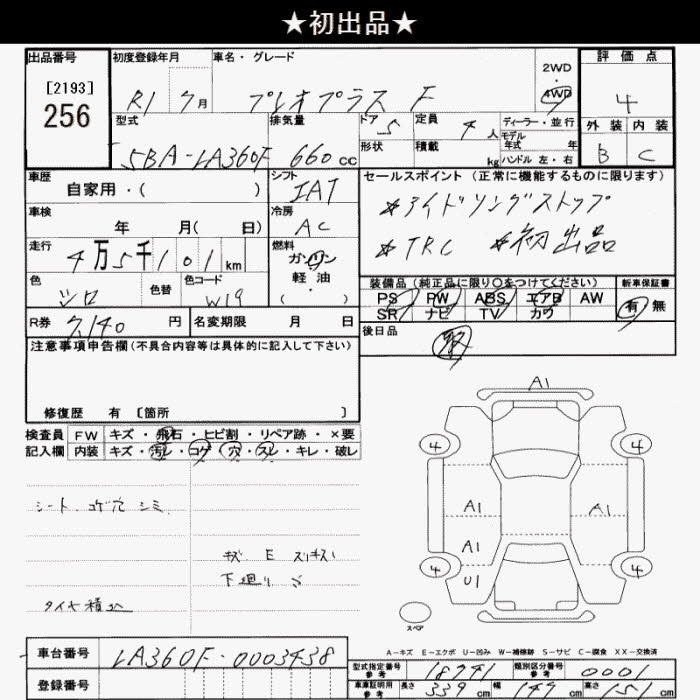 ★初出品★
出品番号 初度登録年月 車名・グレード 2WD 評価点
[2193] R1 7月 プレオプラス F 4WD 4
256 型式 排気量 ドア 5 定員 4人 ディーラー・並行 外装 内装
5BA-LA360F 660cc 形状 積載 kg モデル年式 年 B C
ハンドル 左・右
車歴 シフト セールスポイント (正常に機能するものに限ります)
自家用・( ) IAT *アイドリングストップ
車検 冷房 *TRC *初出品
年 月( 日) AC
走行 燃料
4万5千101km ガソリン
軽油
( ・ )
色 色替 色コード 装備品 (純正品に限り○をつけてください) 新車保証書
シロ W19 PS PW ABS エアB AW 有・無
SR ナビ TV カワ
R券 7,140円 名変期限 月 日 後日品
注意事項申告欄(不具合内容等は具体的に記入して下さい)
修復歴 有 [箇所 ]
検査員 FW キズ・飛石・ヒビ割・リペア跡・×要
記入欄 内装 キズ・汚レ・コゲ・穴・スレ・キレ・破レ
A1
4 4
A1 A1
A1
4 U1 4
スペア
シート コゲ穴 シミ
キズ E スリキズ
下廻り S
タイヤ積込
A-キズ E-エクボ U-凹み W-補修跡 S-サビ C-腐食 XX-交換済
車台番号 LA360F-0003438
登録番号
型式指定番号 参考 18741 類別区分番号 参考 0001
車庫証明用 参考 長さ 339cm 幅 147cm 高さ 151cm